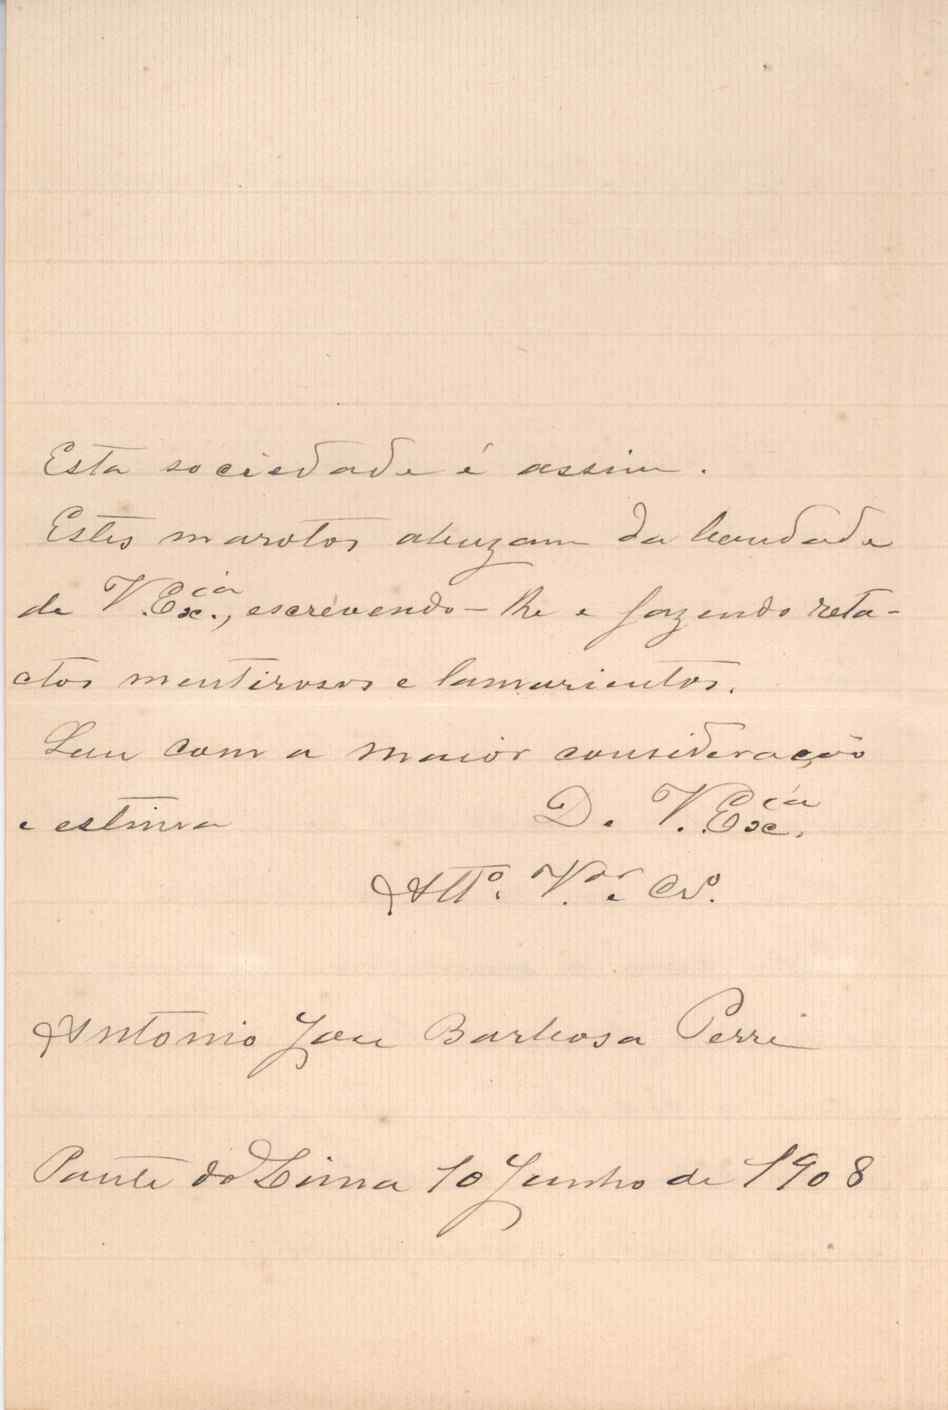 Esta sociedade é assim.
Estes marotos abuzam da bondade
de V. Ex.cia, escrevendo-lhe e fazendo rela-
ctos mentirosos e lamurientos.
Sou com a maior consideração
e estima D. V. Ex.cia
Att.º V.or e Cr.º
Antonio José Barbosa Perre
Ponte do Lima 10 Junho de 1908